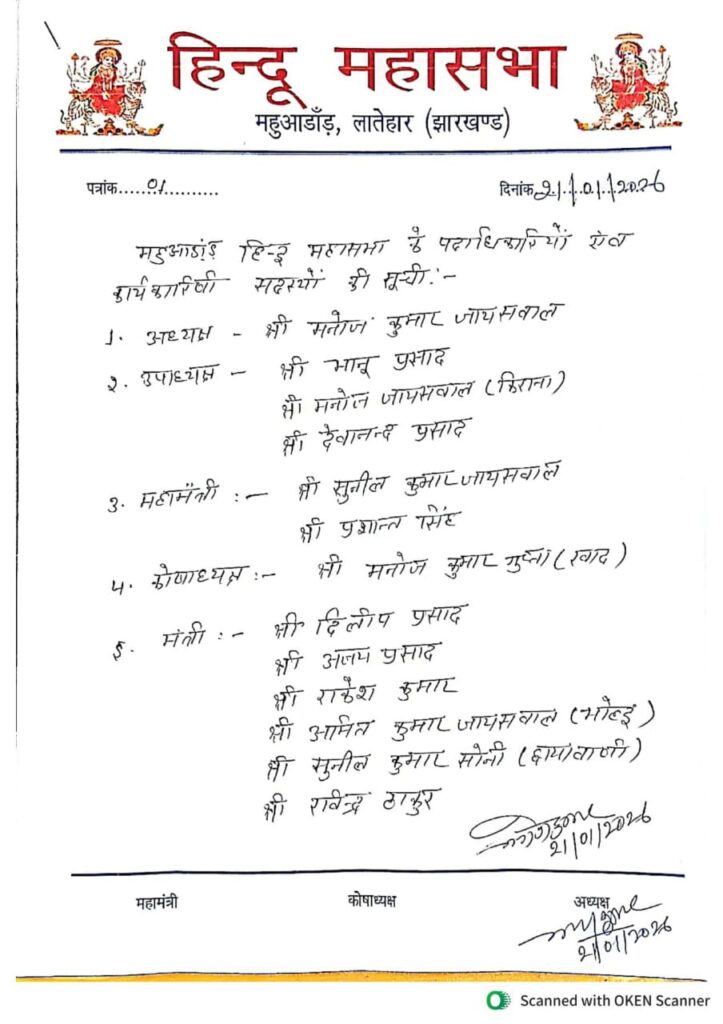 हिन्दू महासभा
महुआडाँड़, लातेहार (झारखण्ड)
पत्रांक......01..........
दिनांक 21/01/2026
महुआडांड़ हिन्दू महासभा के पदाधिकारियों एंव
कार्यकारिणी सदस्यों की सूची:-
1. अध्यक्ष - श्री मनोज कुमार जायसवाल
2. उपाध्यक्ष - श्री भानू प्रसाद
श्री मनोज जायसवाल (किराना)
श्री देवानन्द प्रसाद
3. महामंत्री :- श्री सुनील कुमार जायसवाल
श्री प्रशान्त सिंह
4. कोषाध्यक्ष :- श्री मनोज कुमार गुप्ता (स्वाद)
5. मंत्री :- श्री दिलीप प्रसाद
श्री अजय प्रसाद
श्री राकेश कुमार
श्री अमित कुमार जायसवाल (भोलू)
श्री सुनील कुमार सोनी (छायावाणी)
श्री रविन्द्र ठाकुर
21/01/2026
महामंत्री कोषाध्यक्ष अध्यक्ष
21/01/2026
Scanned with OKEN Scanner